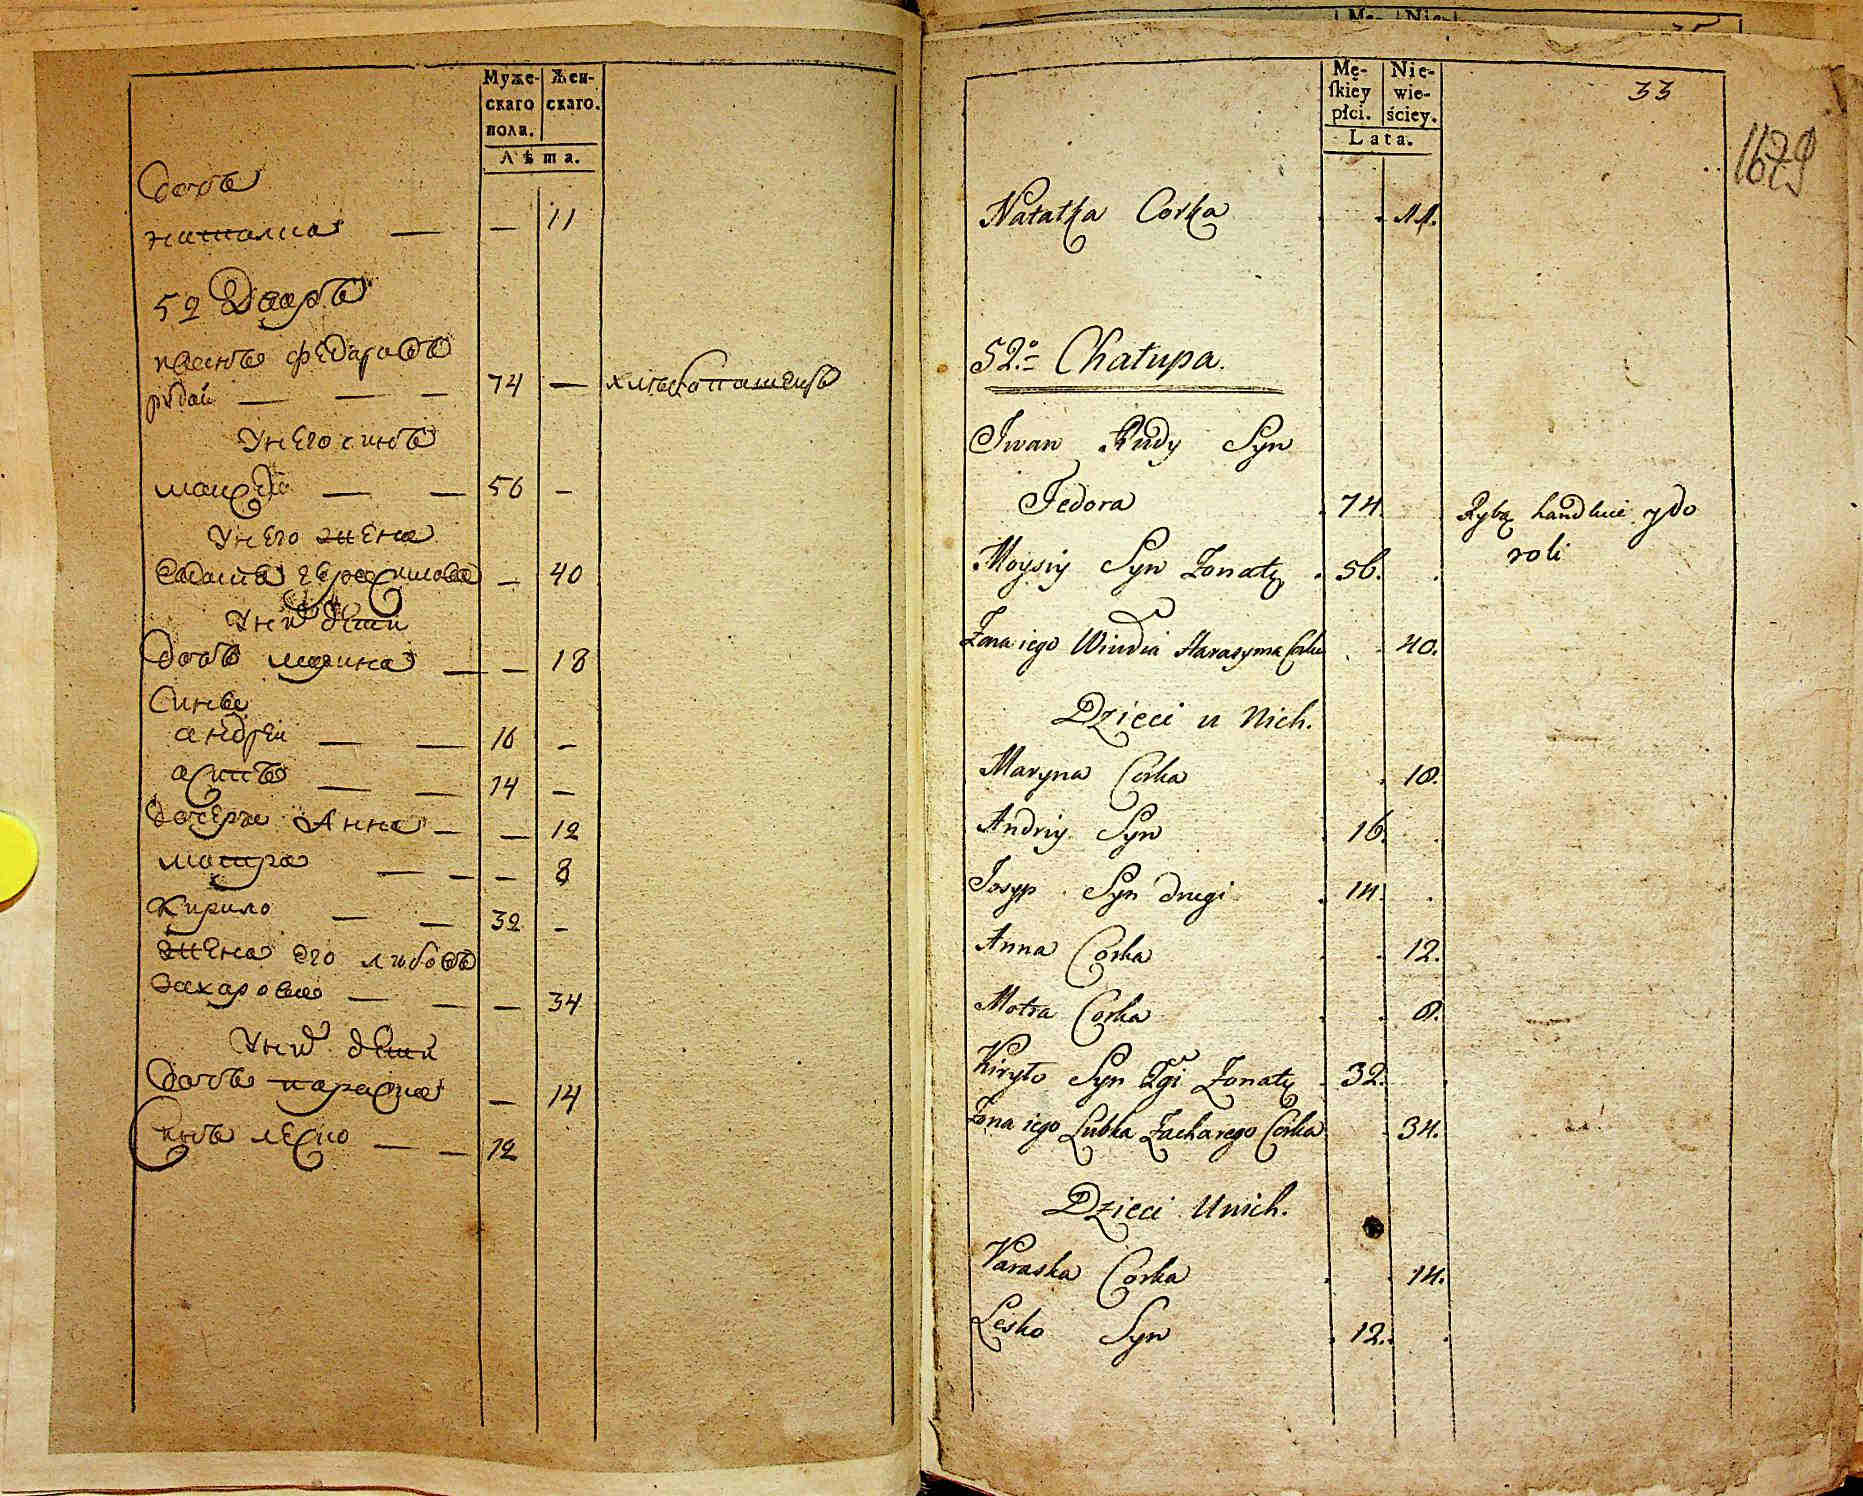 Муже-
скаго
пола.
Жен-
скаго.
Лѣта.
дочь
наталиа — — 11
52 Дворъ
иванъ федаровъ
рудай — — — 74 — хлѣбопашецъ
У него синъ
моисей — — 56 —
У него жена
Герасимова — 40
У них дети
дочь марина — — 18
Сини
андреи — — 16 —
асипъ — — 14 —
дочери Анна — — 12
мотра — — — 8
Кирило — — 32 —
жена его любовъ
Захарова — — — 34
У них дети
дочь параския — 14
Синъ леско — — 12
Mę-
skiey
płci.
Nie-
wie-
ściey.
Lata.
33
1629
Natałka Corka 11.
52.o Chałupa.
Iwan Rudy Syn
Fedora 74. Rybą handluie y do
roli
Moysiy Syn Żonaty 56.
Żona iego Harasyma Corka 40.
Dzieci u Nich.
Maryna Corka 18.
Andriy Syn 16.
Josyp Syn drugi 14.
Anna Corka 12.
Motra Corka 8.
Kiryło Syn 2gi Żonaty 32.
Żona iego Lubka Zacharego Corka 34.
Dzieci Unich.
Paraska Corka 14.
Lesko Syn 12.